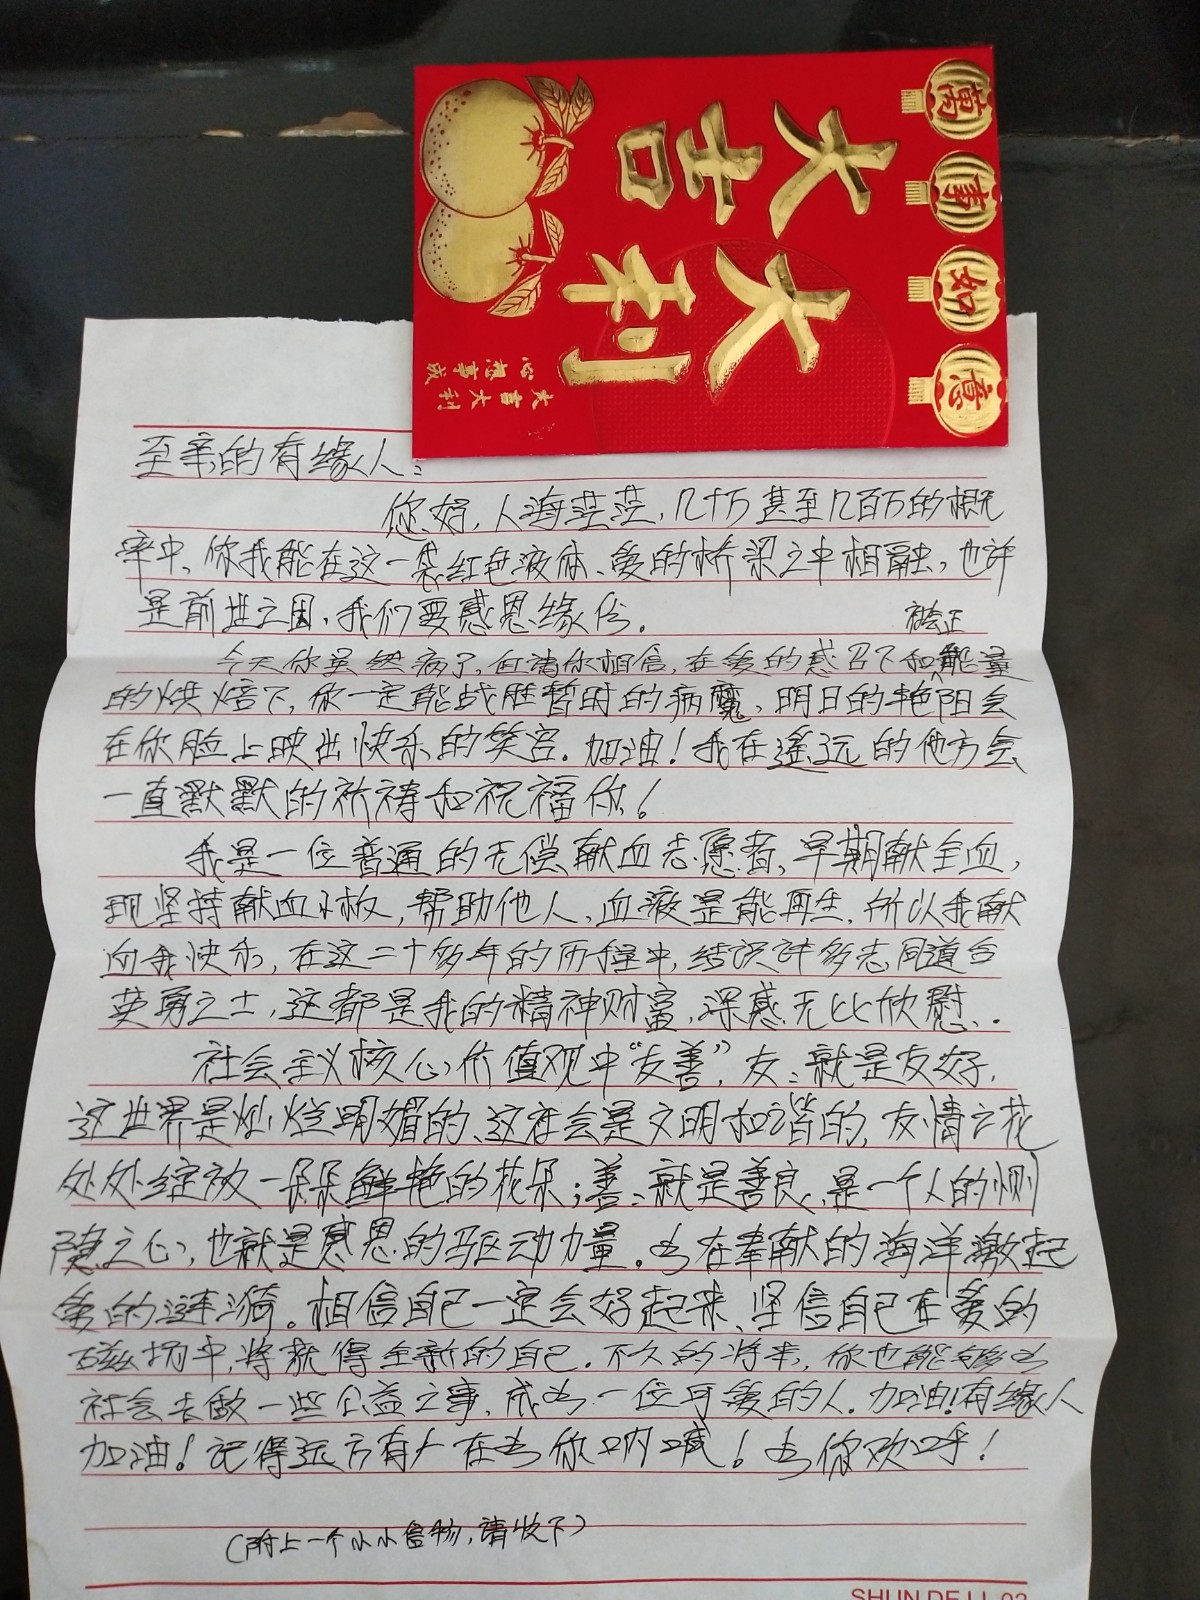 萬事如意
大吉大利
大吉大利
心想事成
至亲的有缘人：
你好，人海茫茫，几十万甚至几百万的概
率中，你我能在这一袋红色液体、爱的桥梁之中相融，也许
是前世之因，我们要感恩缘份。
今天你虽然病了，但请你相信，在爱的感召下和社会正能量
的烘焙下，你一定能战胜暂时的病魔，明日的艳阳会
在你脸上映出快乐的笑容。加油！我在遥远的他方会
一直默默的祈祷和祝福你！
我是一位普通的无偿献血志愿者，早期献全血，
现坚持献血小板，帮助他人，血液是能再生，所以我献
血我快乐，在这二十多年的历程中，结识许多志同道合
英勇之士，这都是我的精神财富，深感无比欣慰..
社会主义核心价值观中“友善”，友：就是友好，
这世界是灿烂明媚的，这社会是文明和谐的，友情之花
处处绽放一朵朵鲜艳的花朵；善：就是善良，是一个人的恻
隐之心，也就是感恩的驱动力量。为在奉献的海洋激起
爱的涟漪。相信自己一定会好起来，坚信自己在爱的
磁场中，将获得全新的自己。不久的将来，你也能够为
社会去做一些公益之事，成为一位可爱的人。加油！有缘人
加油！记得远方有人在为你呐喊！为你欢呼！
（附上一个小小食物，请收下）
SHUN DE LI